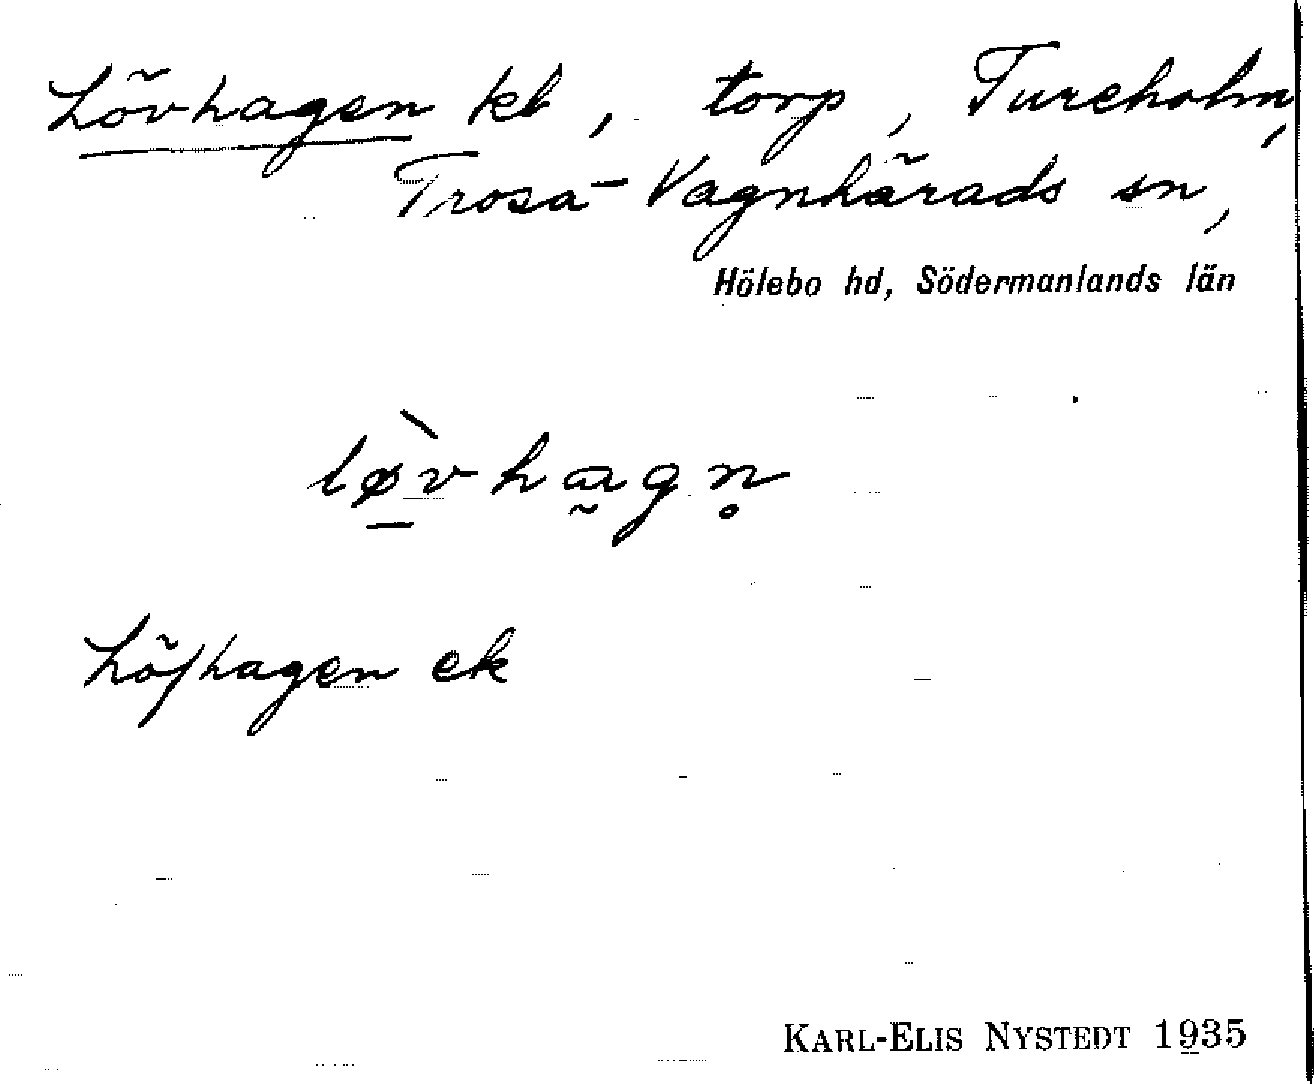 Lövhagen kb, torp, Tureholm,
Trosa-Vagnhärads sn,
Hölebo hd, Södermanlands län
lø̠̀vhɑ̰gn̥
Löfhagen ek
KARL-ELIS NYSTEDT 1935